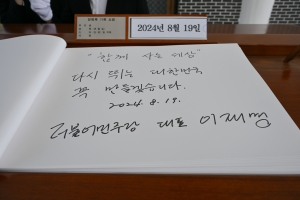 2024년 8월 19일
"함께 사는 세상"
다시 뛰는 대한민국
꼭 만들겠습니다.
2024. 8. 19.
더불어민주당 대표 이재명